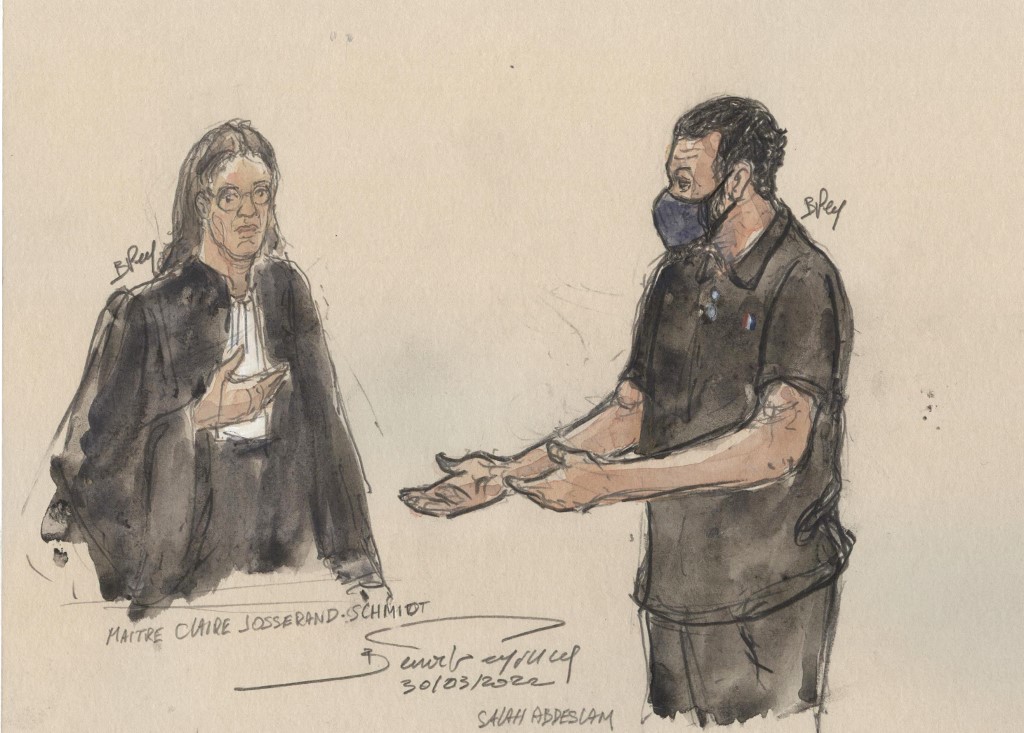 BPey
BPey
MAITRE CLAIRE JOSSERAND-SCHMIDT
Benoit Peyrucq
30/03/2022
SALAH ABDESLAM